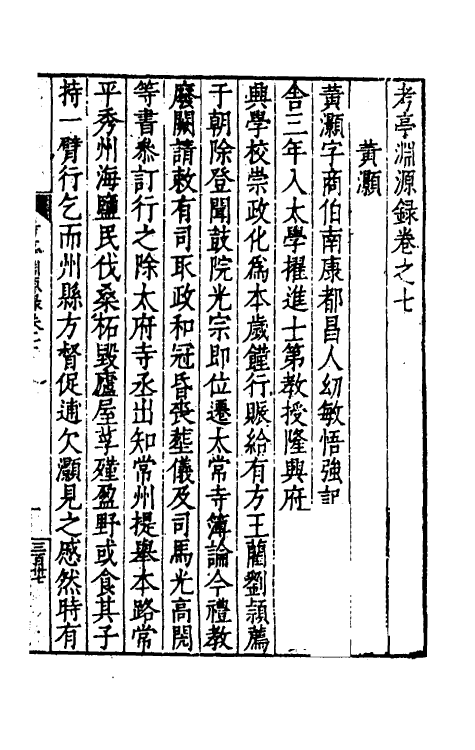 考亭淵源録卷之七
黄灝
黄灝字商伯南康都昌人㓜敏悟強記
舎三年入太學擢進士第教授隆興府
興學校崇政化爲本歳饉行賑給有方王藺劉頴薦
于朝除登聞鼓院光宗即位遷太常寺簿論今禮教
廢闕請敕有司取政和冠昏喪塟儀及司馬光高閌
等書叅訂行之除太府寺丞出知常州提舉本路常
平秀州海鹽民伐桑柘毀廬屋莩殣盈野或食其子
持一臂行乞而州縣方督促逋欠灝見之慼然時有
三百廿七